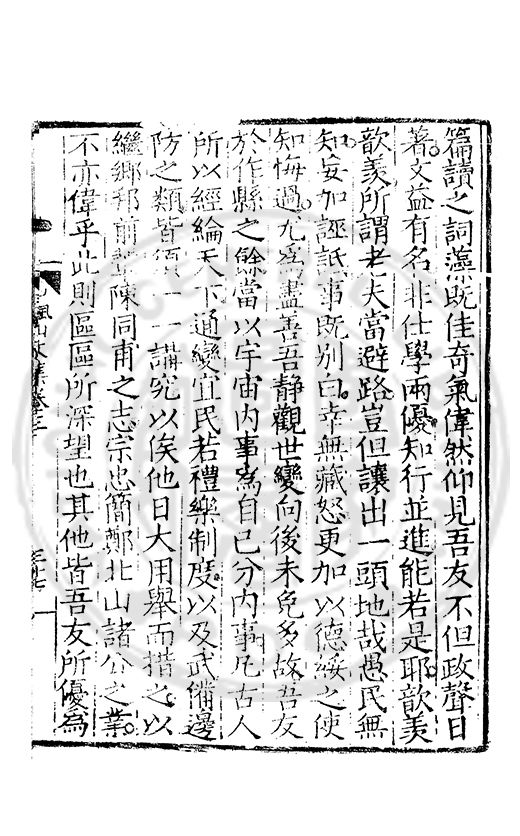 篇讀之詞藻既佳奇氣偉然仰見吾友不但政聲日
著文益有名非仕學兩優知行並進能若是耶歆羨
歆羨所謂老夫當避路豈但讓出一頭地哉愚民無
知妄加誣詆事既別白幸無藏怒更加以德綏之使
知悔過尤爲盡善吾靜觀世變向後未免多故吾友
於作縣之餘當以宇宙內事為自己分內事凡古人
所以經綸天下通變宜民若禮樂制度以及武備邊
防之類皆須一一講究以俟他日大用舉而措之以
繼鄉邦前輩陳同甫之志宗忠簡鄭北山諸公之業
不亦偉乎此則區區所深望也其他皆吾友所優為
楓山文集卷二